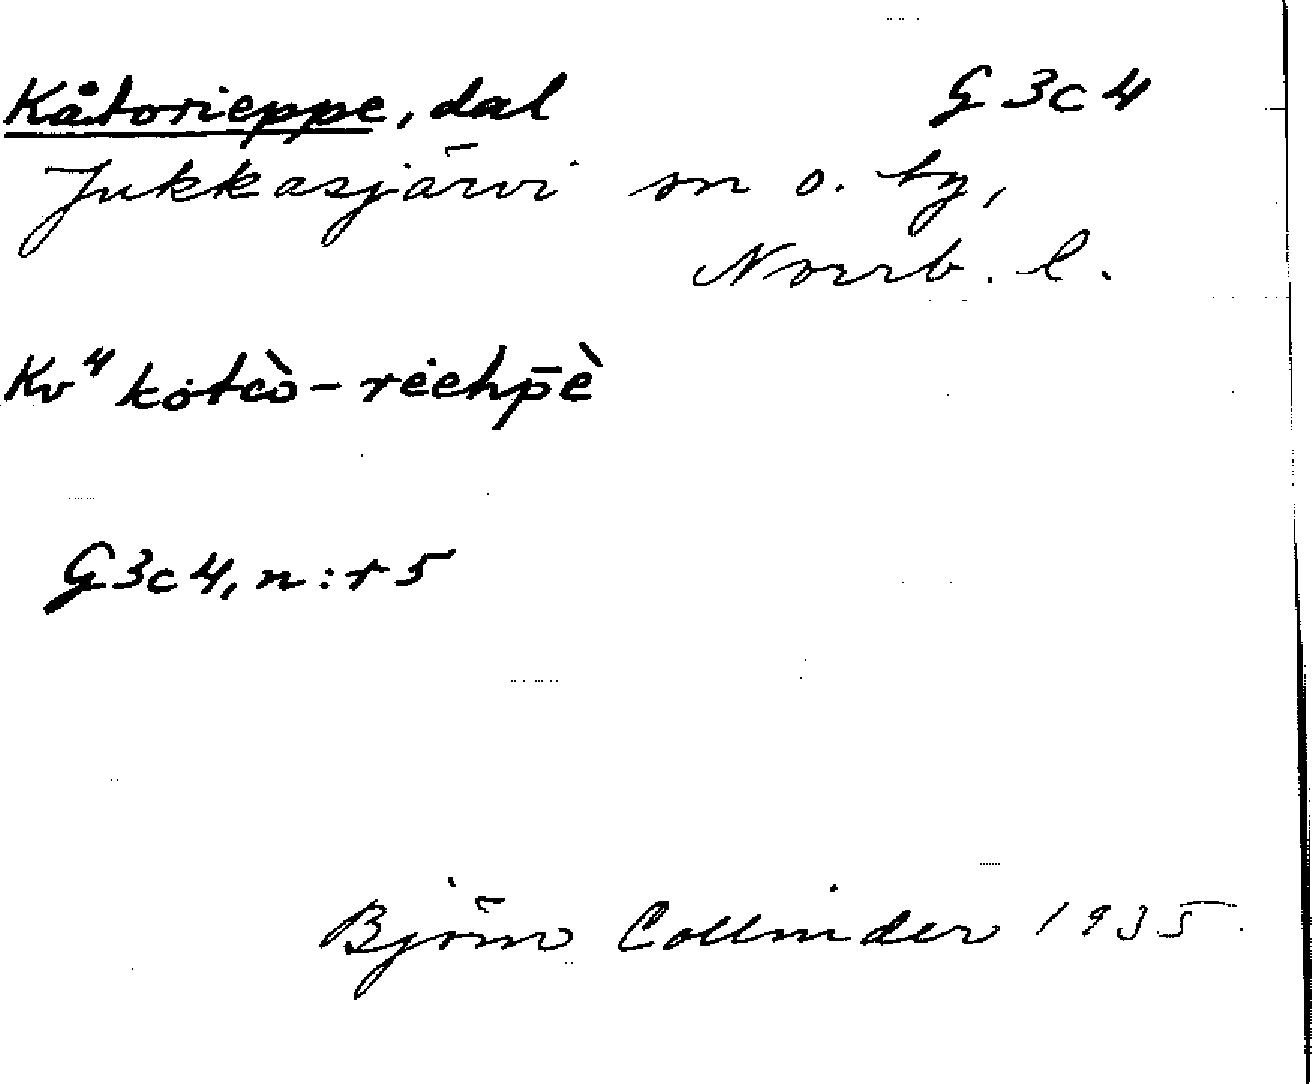 Kåtorieppe, dal G3c4
Jukkasjärvi sn o. by,
Norrb. l.
Kv⁴ kȯtcò-rėehp̄è
G3c4, n:r 5
Björn Collinder 1935.